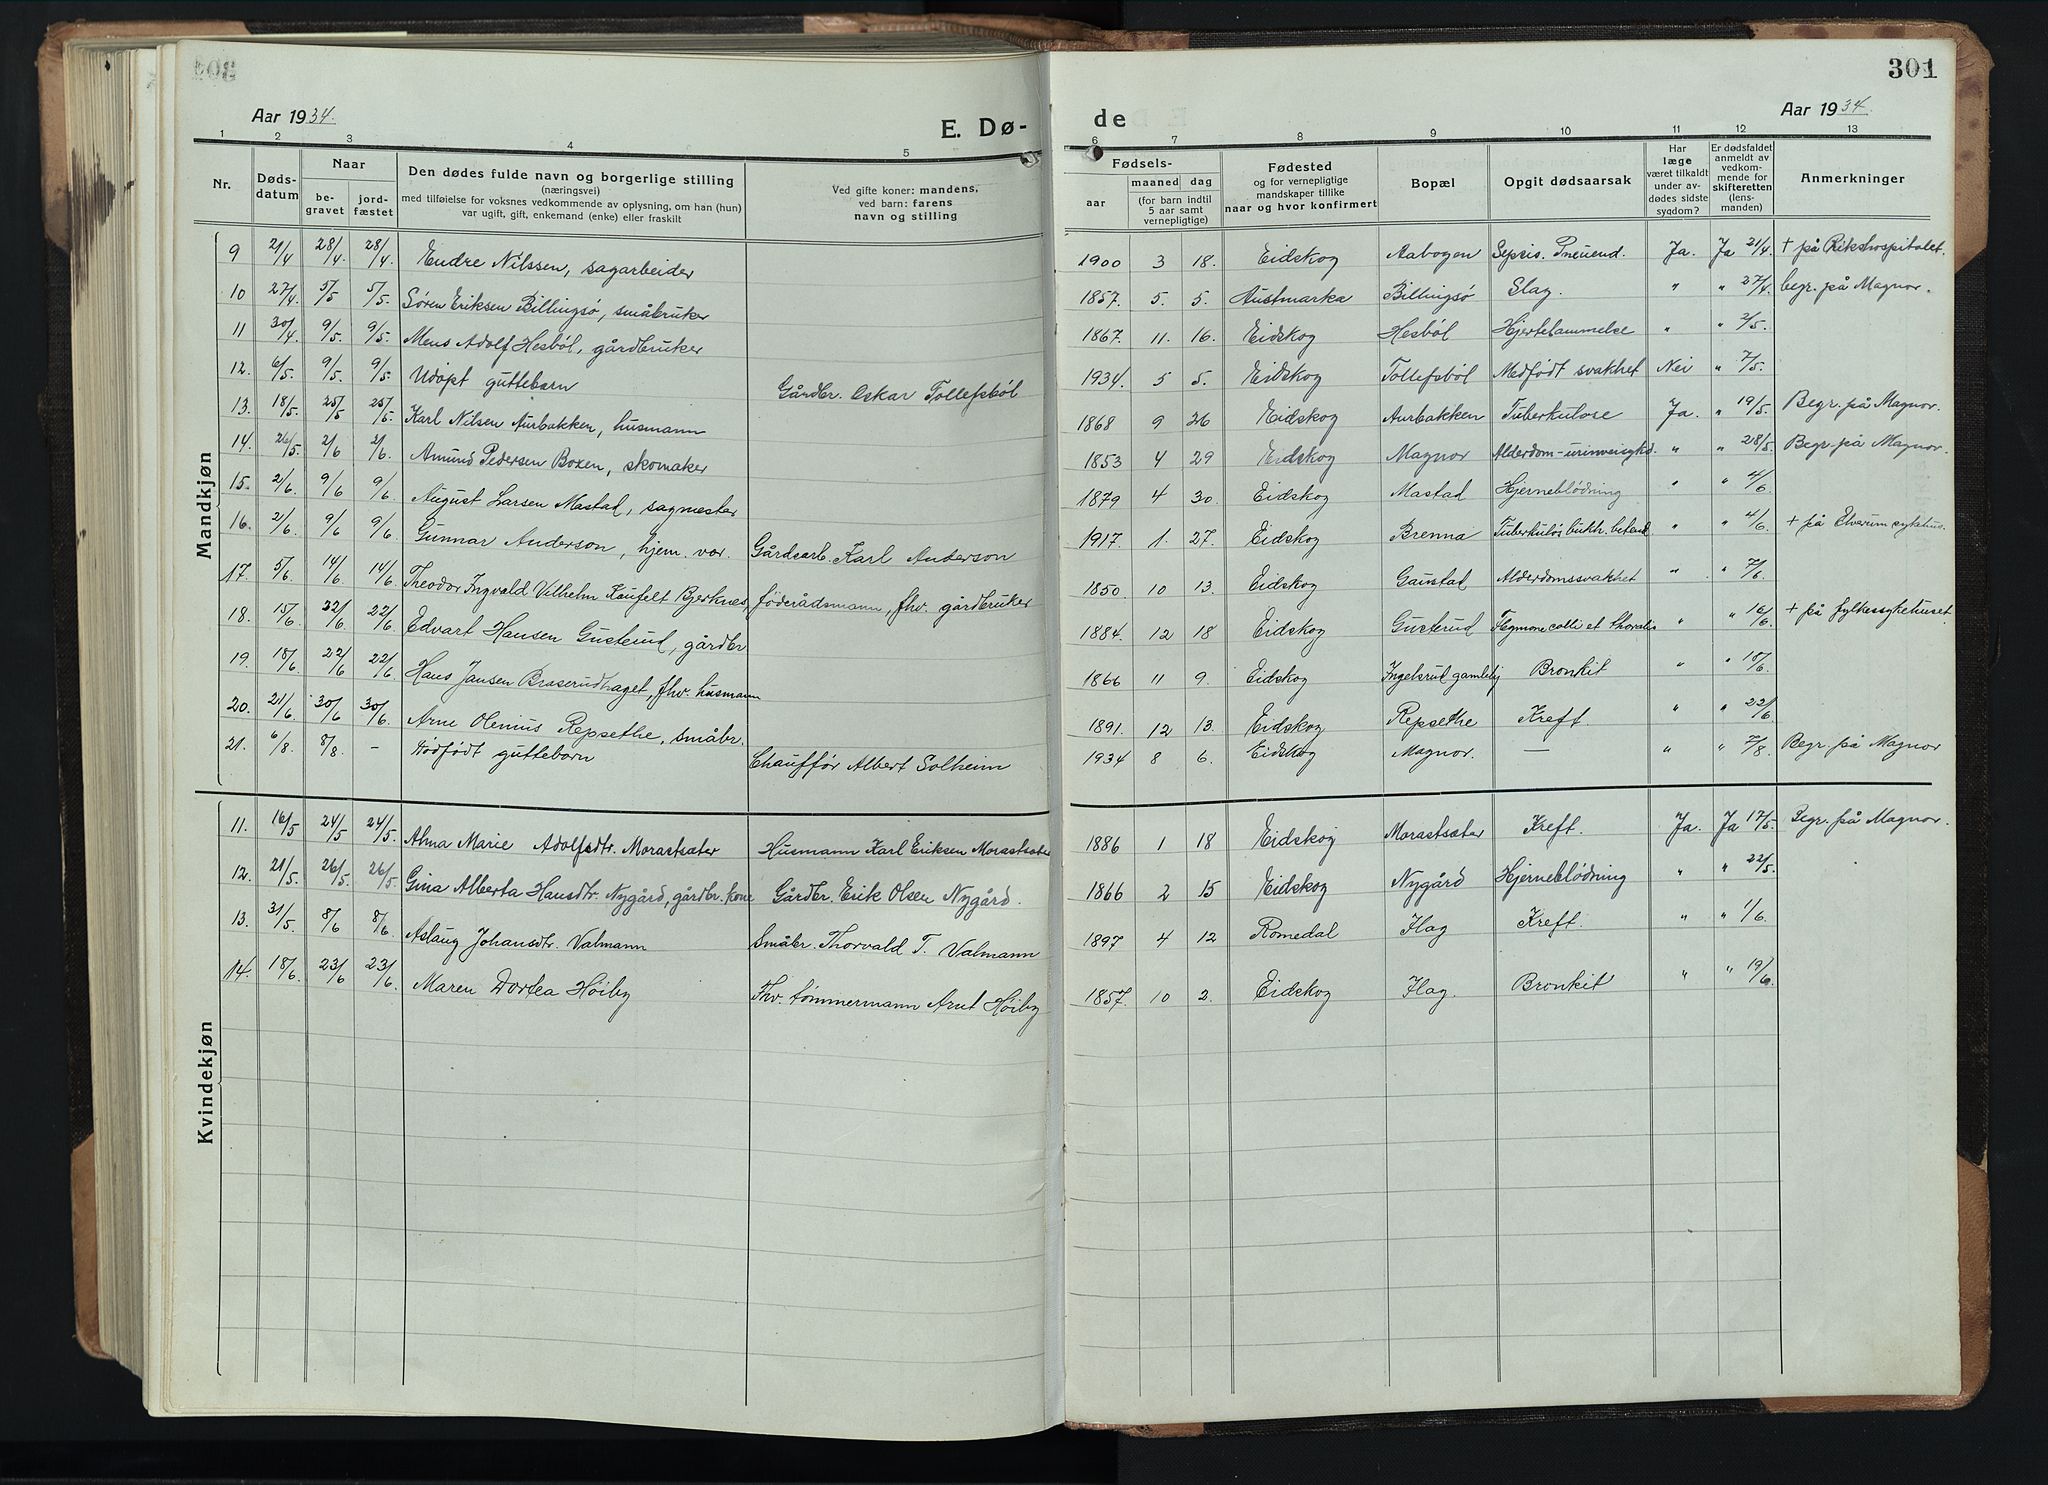 301
Aar 1934.
E. Dø-
de
Aar 1934.
1 2 3 4 5 6 7 8 9 10 11 12 13
Nr.
Døds-
datum
Naar
be-
gravet
jord-
fæstet
Den dødes fulde navn og borgerlige stilling
(næringsvei)
med tilføielse for voksnes vedkommende av oplysning, om han (hun)
var ugift, gift, enkemand (enke) eller fraskilt
Ved gifte koner: mandens,
ved barn: farens
navn og stilling
Fødsels-
aar
maaned
dag
(for barn indtil
5 aar samt
vernepligtige)
Fødested
og for vernepligtige
mandskaper tillike
naar og hvor konfirmert
Bopæl
Opgit dødsaarsak
Har
læge
været tilkaldt
under av-
dødes sidste
sygdom?
Er dødsfaldet
anmeldt av
vedkom-
mende for
skifteretten
(lens-
manden)
Anmerkninger
Mandkjøn
9 21/4 28/4. 28/4. Endre Nilssen, sagarbeider 1900 3 18. Eidskog Aabogen Sepsis. Pneuend. Ja. Ja 21/4. + på Rikshospitalet.
10 27/4. 5/5 5/5. Søren Eriksen Billingsø, småbruker 1857. 5. 5. Austmarka Billingsø Slag. " " 27/4. begr. på Magnor.
11 30/4 9/5. 9/5. Mens Adolf Hesbøl, gårdbruker 1867. 11. 16. Eidskog Hesbøl Hjertelammelse " " 2/5.
12. 6/5. 9/5. 9/5. Udøpt guttebarn Gårdbr. Oskar Tollefsbøl 1934. 5 5. Eidskog Tollefsbøl Medfødt svakhet Nei " 7/5.
13. 18/5. 25/5 25/5. Karl Nilsen Aurbakken, husmann 1868 9 26 Eidskog Aurbakken Tuberkulose Ja. " 19/5. Begr. på Magnor.
14. 26/5. 2/6 2/6. Amund Pedersen Boxen, skomaker 1853 4 29 Eidskog Magnor Alderdom-urinveisykd. " " 28/5. Begr. på Magnor.
15. 2/6. 9/6 9/6. August Larsen Mastad, sagmester 1879 4 30. Eidskog Mastad Hjerneblødning " " 4/6.
16. 2/6. 9/6 9/6. Gunnar Anderson, hjem. var. Gårdsarb. Karl Anderson 1917. 1. 27. Eidskog Brenna Tuberkuløs " " 4/6. + på Elverum sykehus.
17. 5/6. 14/6 14/6. Theodor Ingvald Vilhelm Kaufelt Bjerknes, føderådsmann, fhv. gårdbruker 1850. 10 13. Eidskog Gaustad Alderdomssvakhet " " 7/6.
18. 15/6. 22/6. 22/6. Edvart Hansen Gusterud, gårdbr 1884. 12 18 Eidskog Gusterud Flegmone colli et thoralis " " 16/6. + på fylkessykehuset.
19. 18/6. 22/6 22/6. Hans Jansen Braserudhaget, fhv. husmann 1866 11 9. Eidskog Ingelsrud gamlehj Bronkit " " 18/6.
20. 21/6. 30/6 30/6. Arne Olenius Repsethe, småbr. 1891. 12 13. Eidskog Repsethe Kreft. " " 22/6.
21. 6/8. 8/8. - Dødfødt guttebarn Chauffør Albert Solheim 1934 8 6. Eidskog Magnor. — " " 7/8. Begr. på Magnor
Kvindekjøn
11. 16/5 24/5 24/5. Alma Marie Adolfsdtr. Morastsæter Husmann Karl Eriksen Morastsæter 1886 1 18 Eidskog Morastsæter Kreft. Ja. Ja 17/5. Begr. på Magnor.
12. 21/5. 26/5. 26/5. Gina Alberta Hansdtr. Nygård, gårdbr. kone Gårdbr. Erik Olsen Nygård. 1866 2 15 Eidskog Nygård Hjerneblødning " " 22/5.
13. 31/5. 8/6 8/6. Aslaug Johansdtr. Valmann Småbr. Thorvald T. Valmann 1897 4 12 Romedal Flag Kreft. " " 1/6.
14. 18/6. 23/6 23/6. Maren Dortea Høiby Fhv. tømmermann Arnt Høiby 1857. 10 2. Eidskog Flag. Bronkit " " 19/6.